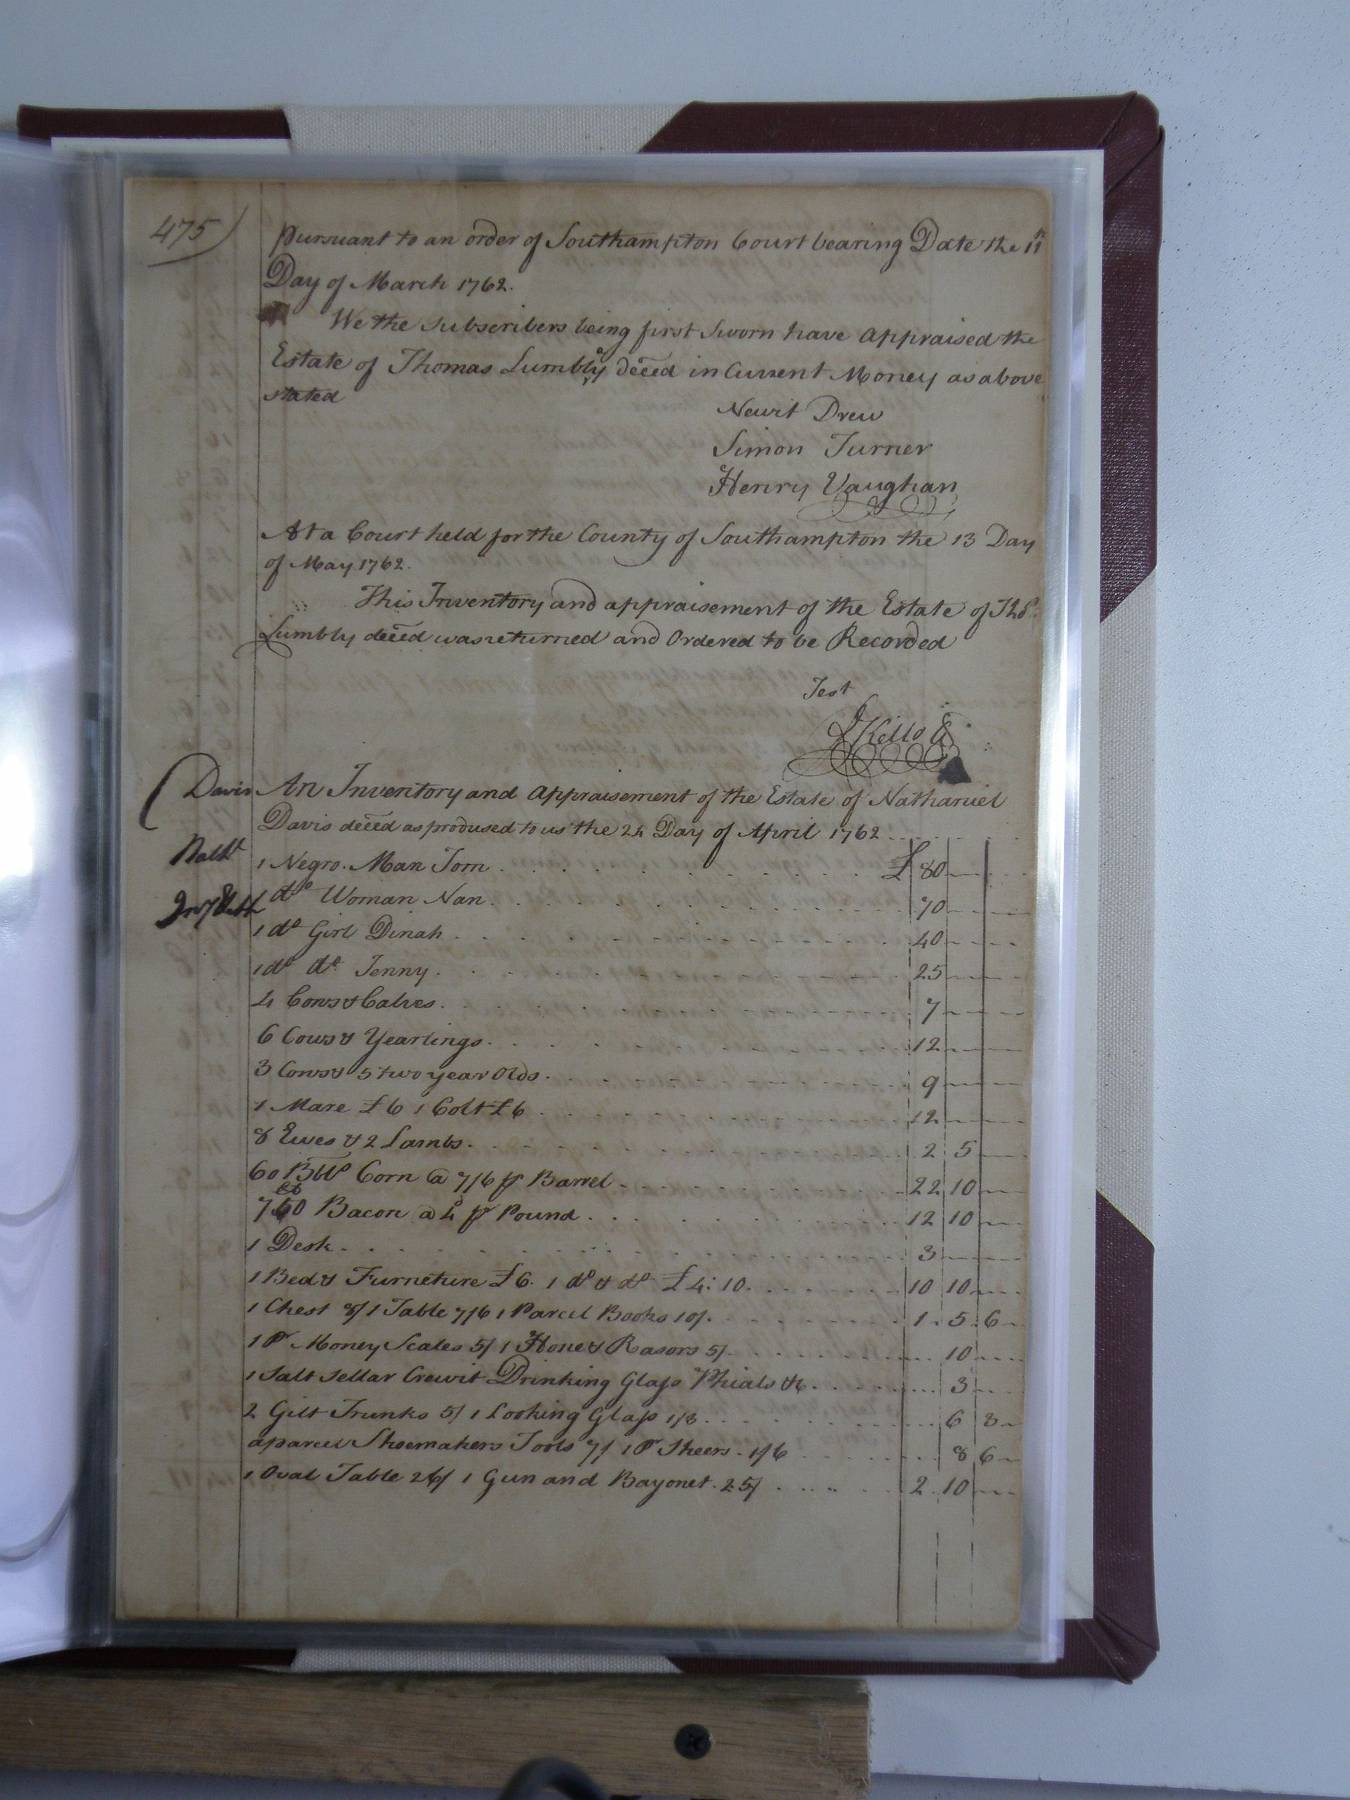 475
Pursuant to an order of Southampton Court bearing Date the 11th
Day of March 1762.
We the Subscribers being first Sworn have appraised the
Estate of Thomas Lumbly deced in Current Money as above
stated
Newit Drew
Simon Turner
Henry Vaughan
At a Court held for the County of Southampton the 13 Day
of May 1762.
This Inventory and appraisement of the Estate of Thos
Lumbly deced was returned and Ordered to be Recorded
Test
Kello
Davis An Inventory and Appraisement of the Estate of Nathaniel
Davis deced as prodused to us the 24 Day of April 1762
Nathl
1 Negro Man Tom £ 80
1 do Woman Nan 70
1 do Girl Dinah 40
1 do do Jenny 25
4 Cows & Calves 7
6 Cows & Yearlings 12
3 Cows & 5 two year Olds 9
1 Mare £6 1 Colt £6 12
8 Ewes & 2 Lambs 2 5
60 Blls Corn @ 7/6 pr Barrel 22 10
750 Bacon @ 4d pr Pound 12 10
1 Desk 3
1 Bed & Furneture £6. 1 do & do £4:10. 10 10
1 Chest 8/ 1 Table 7/6 1 Parcel Books 10/. 1 5 6
1 Pr Money Scales 5/ 1 Hone & Rasors 5/. 10
1 Salt Sellar Crewit Drinking Glass Phials &c 3
2 Gilt Trunks 5/ 1 Looking Glass 1/3 6 3
a parcel Shoemakers Tools 7/ 1 Pr Sheers 1/6 8 6
1 Oval Table 26/ 1 Gun and Bayonet 25/ 2 10